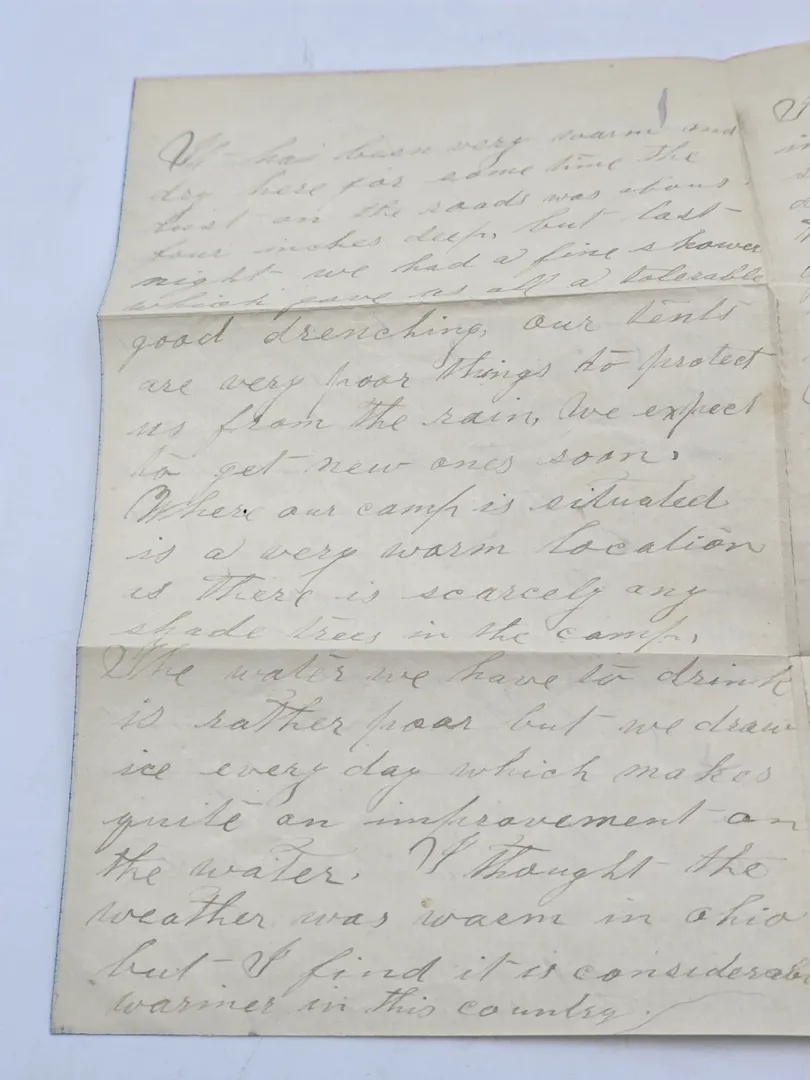 It has been very warm and
dry here for some time the
dust on the roads was about
four inches deep, but last
night we had a fine shower
which gave us all a tolerable
good drenching, our tents
are very poor things to protect
us from the rain, We expect
to get new ones soon,
Where our camp is situated
is a very warm location
as there is scarcely any
shade trees in the camp,
The water we have to drink
is rather poor but we draw
ice every day which makes
quite an improvement on
the water. I thought the
weather was warm in ohio
but I find it is considerab
warmer in this country.